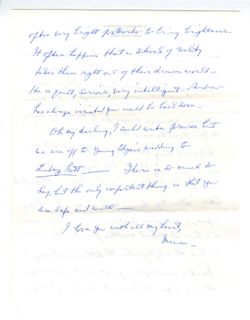 often very bright to bring brightness
It often happens that a of reality
takes them right out of their dream world –
He is quiet, serious, very intelligent.
has always insisted you would be back soon –
Oh my darling, I could write forever but
we are off to Young wedding to
Lindsay – There is so much to
say, but the only important thing is that you
are safe and well –
I love you with all my heart,
Mum –